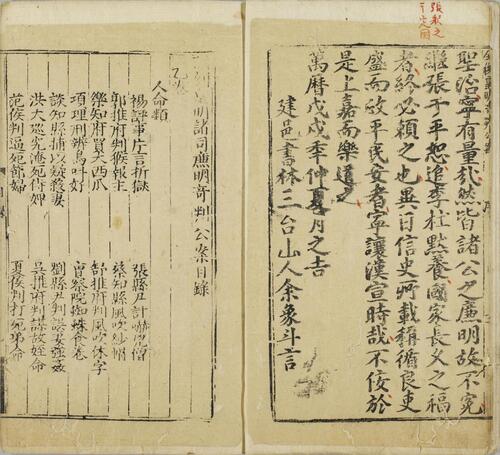 張釈之
于定国
聖治寧有量哉然皆諸公之廉明故不冤
繼張于平恕追李杜黙養國家長久之福
者終必賴之也異日信史所載稱循良吏
盛而政平民安者寧讓漢宣時哉不佞於
是上嘉而樂道之
萬曆戊戌季仲夏月之吉
建邑書林三台山人余象斗言
明諸司廉明奇判公案目錄
人命類
楊評事片言折獄 張縣尹計嚇兇僧
郭推府判猴報主 蔡知縣風吹紗帽
樂知府買大西瓜 舒推府判風吹休字
項理刑辨鳥叫好 曾察院蜘蛛食卷
談知縣捕以疑殺妻 劉縣尹判誤妻強姦
洪大巡究淹死侍婢 吳推府判誤故姪命
范侯判逼死節婦 夏侯判打死弟命